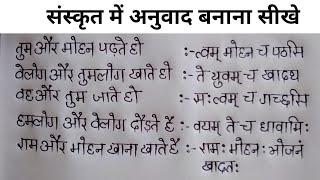 संस्कृत में अनुवाद बनाना सीखे
तुम और मोहन पढ़ते हो :- त्वम् मोहन च पठसि
वेलोग और तुमलोग खाते हो :- ते युवम् च खादथ
वह और तुम जाते हो :- सः त्वम् च गच्छसि
हमलोग और वेलोग दौड़ते हैं :- वयम् ते च धावामि:
राम और मोहन खाना खाते हैं :- रामः मोहनः भोजनं
खादतः